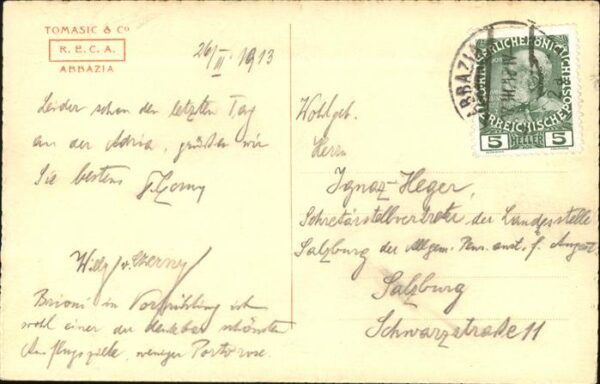 TOMASIC & Co
R. E. C. A.
ABBAZIA
26/III 1913
Leider schon den letzten Tag
an der Adria, grüßen wir
Sie bestens
Willy
Brioni im Vorfrühling ist
wohl einer der denkbar schönsten
Ausflugsziele, weniger Portorose.
Wohlgeb.
Herrn
Ignaz Heger,
Sekretärstellvertreter der Landesstelle
Salzburg der Allgem. Pens. anst. f. Angest.
Salzburg
Schwarzstraße 11
ABBAZIA
5 HELLER 5